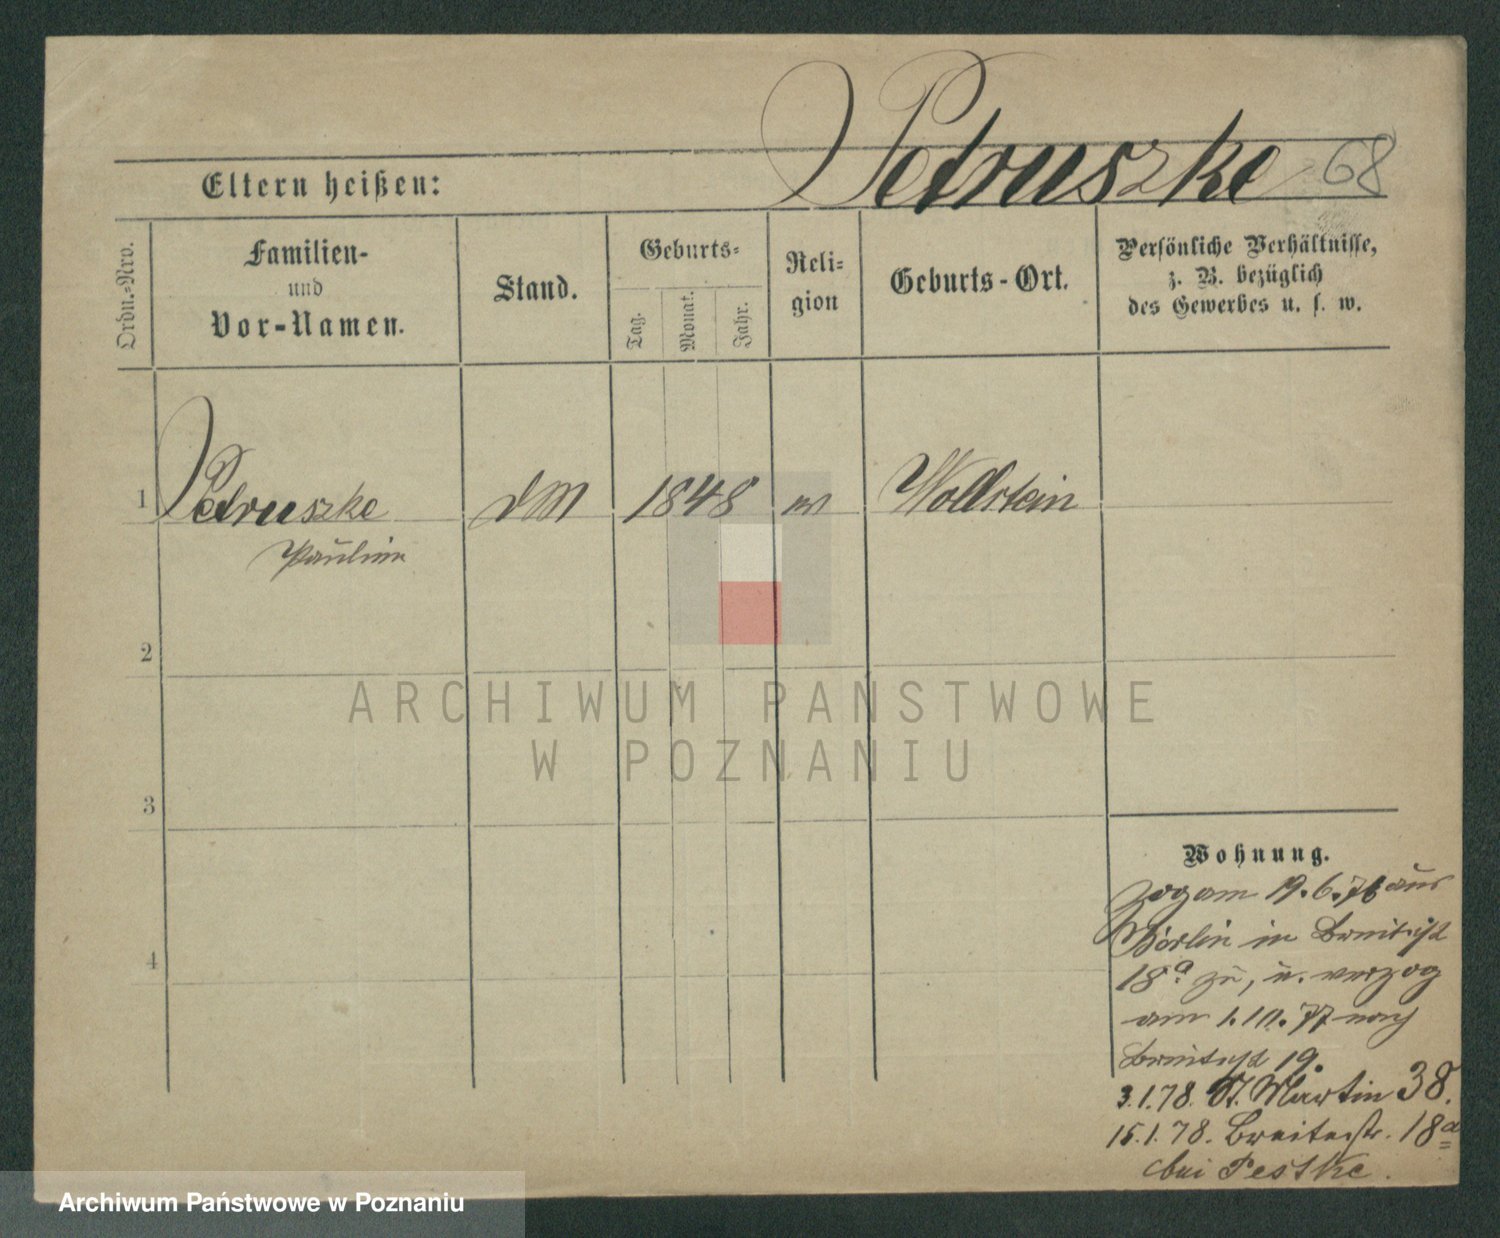 Petruszke 68
Eltern heißen:
Ordn.-Nro.
Familien-
und
Vor-Namen.
Stand.
Geburts-
Tag.
Monat.
Jahr.
Reli-
gion
Geburts-Ort.
Persönliche Verhältnisse,
z. B. bezüglich
des Gewerbes u. s. w.
1 Petruszke DM 1848 Wollstein
Pauline
2
3
4
ARCHIWUM PAŃSTWOWE
W POZNANIU
Wohnung.
zog am 19.6.76 aus
Berlin in Breitestr
18a zu, u. verzog
am 1.10.77 nach
Breitestr 19.
3.1.78. St. Martin 38.
15.1.78. Breitestr. 18a
bei Pestke.
Archiwum Państwowe w Poznaniu